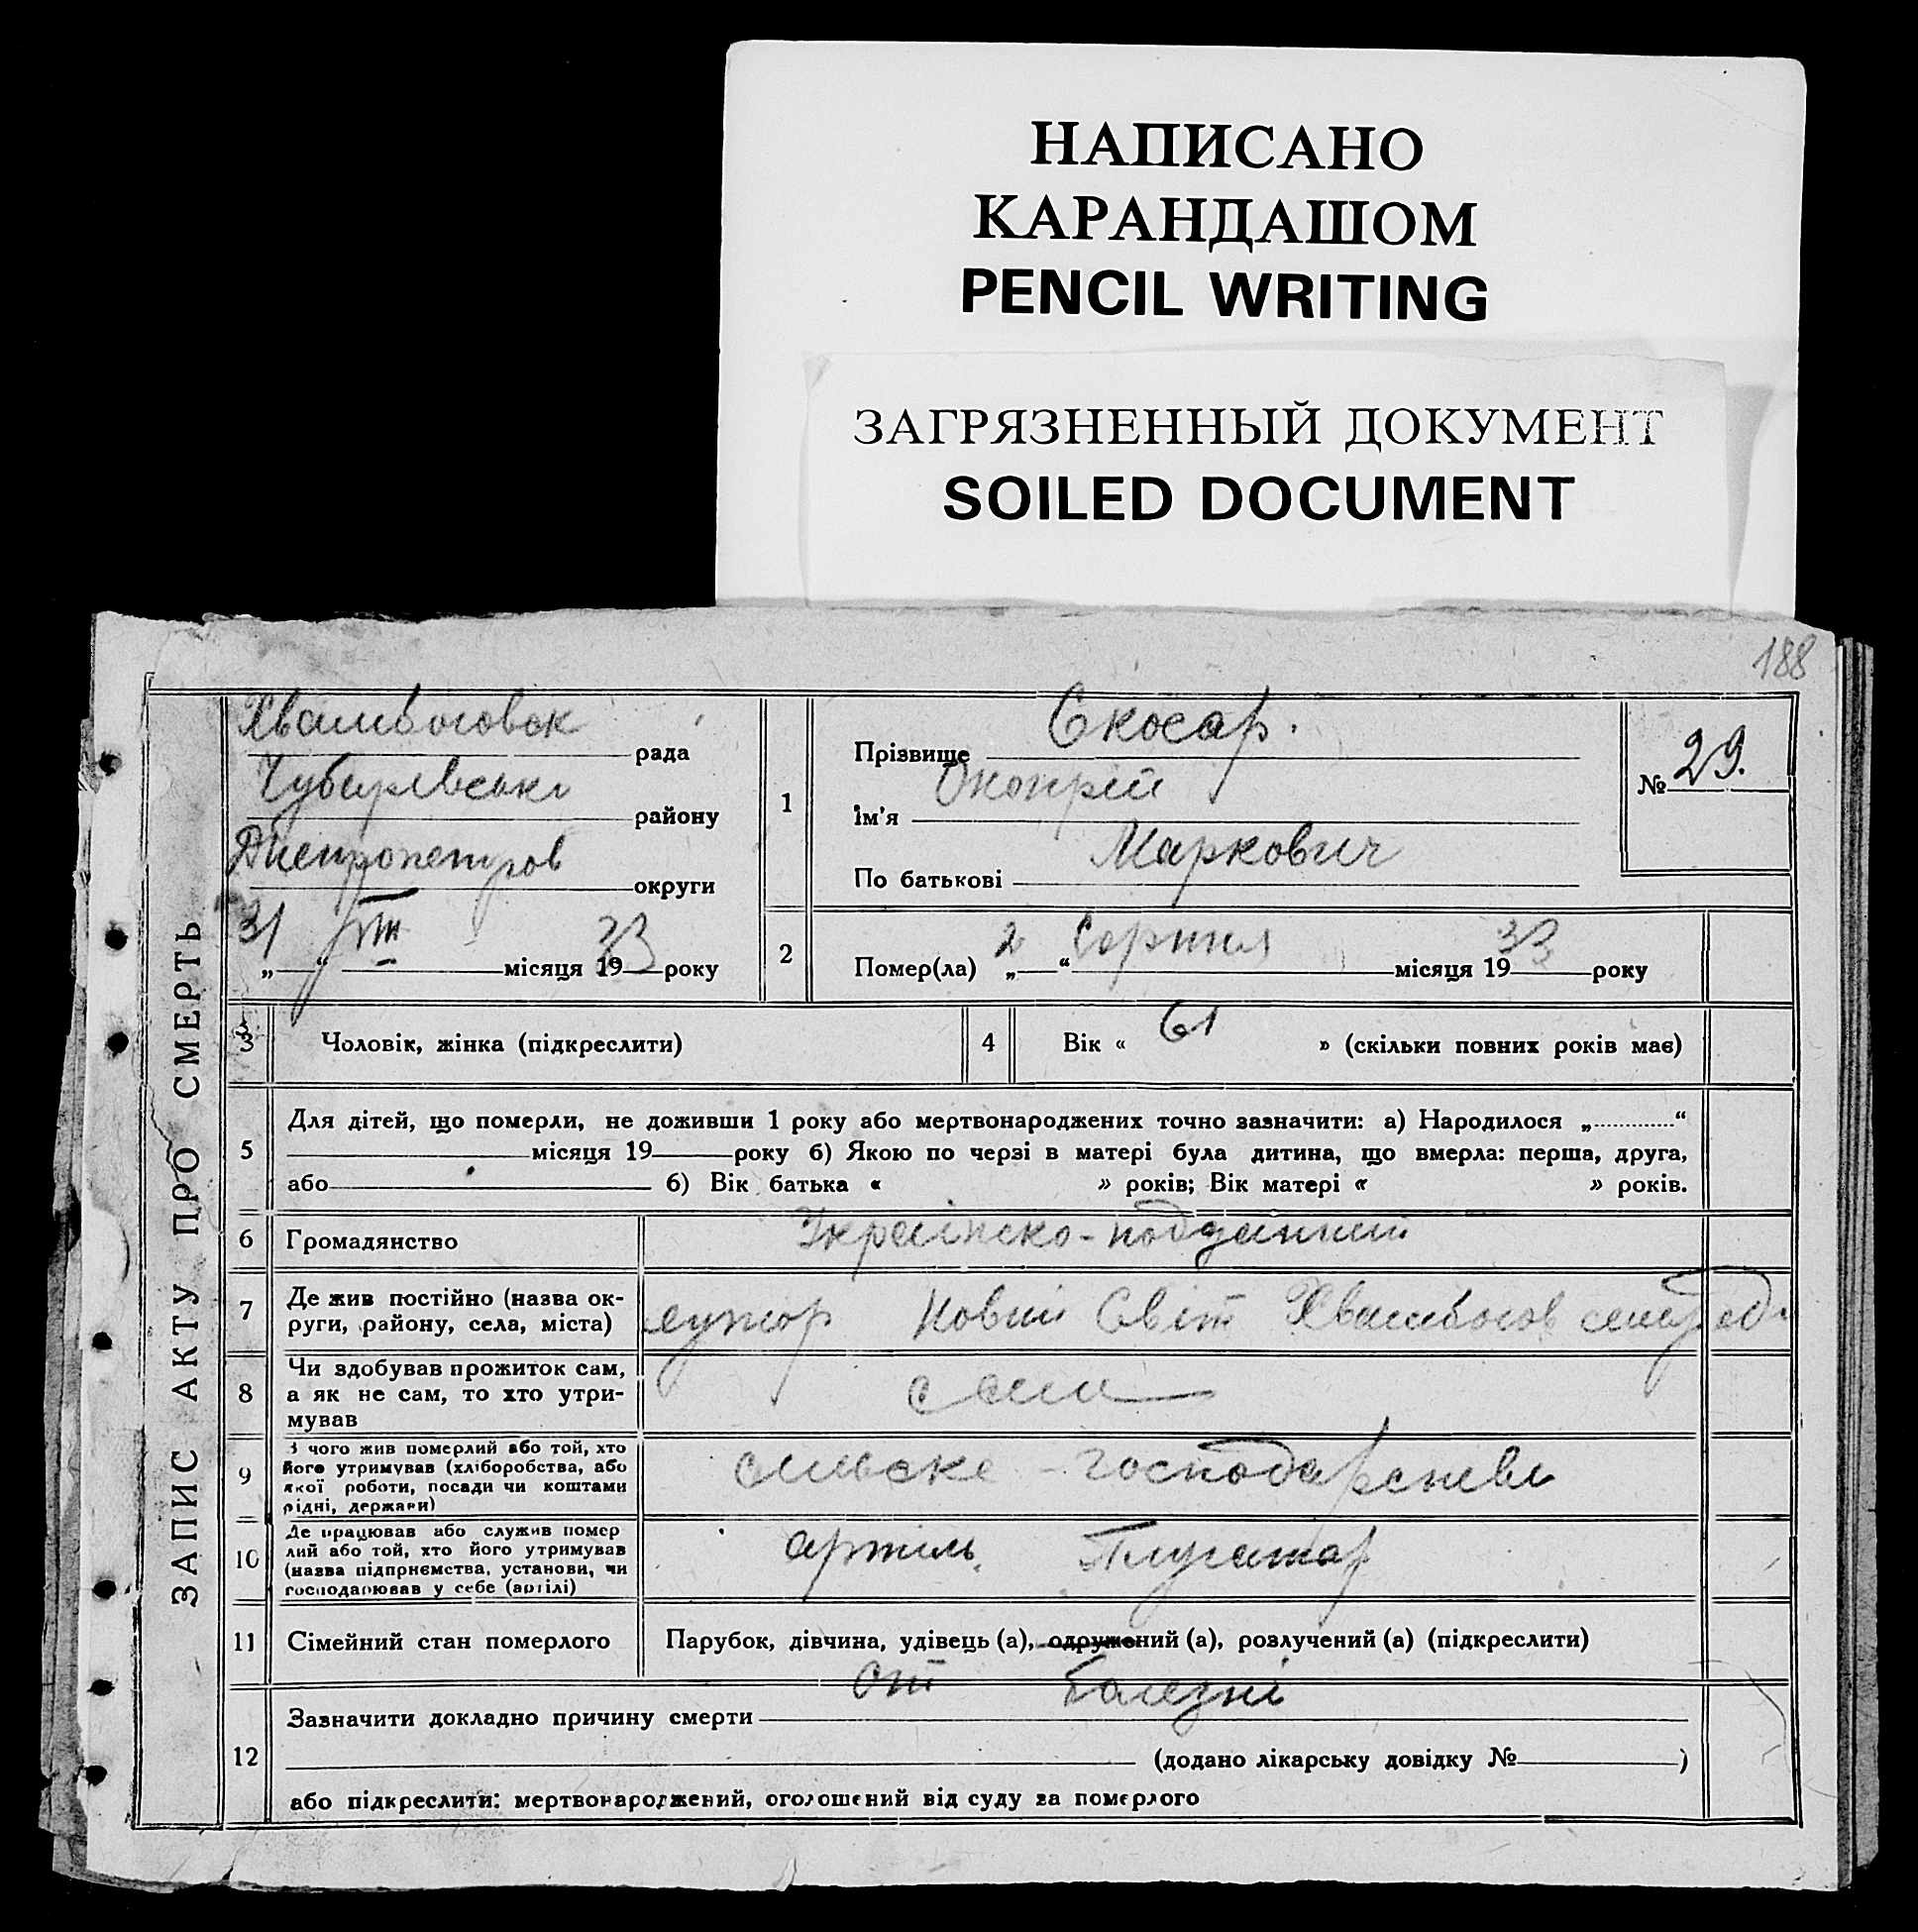 НАПИСАНО
КАРАНДАШОМ
PENCIL WRITING
ЗАГРЯЗНЕННЫЙ ДОКУМЕНТ
SOILED DOCUMENT
188
ЗАПИС АКТУ ПРО СМЕРТЬ
рада
району
Днепропетров округи
31 VIII місяця 1933 року
1
Прізвище Скосар.
Ім'я
По батькові Маркович
№ 29.
2
Помер(ла) „2“ Серпня місяця 1933 року
3 Чоловік, жінка (підкреслити)
4 Вік « 61 » (скільки повних років має)
5 Для дітей, що померли, не доживши 1 року або мертвонароджених точно зазначити: а) Народилося „ “
місяця 19 року б) Якою по черзі в матері була дитина, що вмерла: перша, друга,
або б) Вік батька « » років; Вік матері « » років.
6 Громадянство Украінско-подданий
7 Де жив постійно (назва ок-
руги, району, села, міста) Новий Світ
8 Чи здобував прожиток сам,
а як не сам, то хто утри-
мував
сам
9 З чого жив померлий або той, хто
його утримував (хліборобства, або
якої роботи, посади чи коштами
рідні, держави)
сильске - господарство
10 Де працював або служив помер
лий або той, хто його утримував
(назва підприємства, установи, чи
господарював у себе (артілі)
артіль Плугатар
11 Сімейний стан померлого Парубок, дівчина, удівець (а), одружений (а), розлучений (а) (підкреслити)
12 Зазначити докладно причину смерти от болезні
(додано лікарську довідку № )
або підкреслити: мертвонароджений, оголошений від суду за померлого